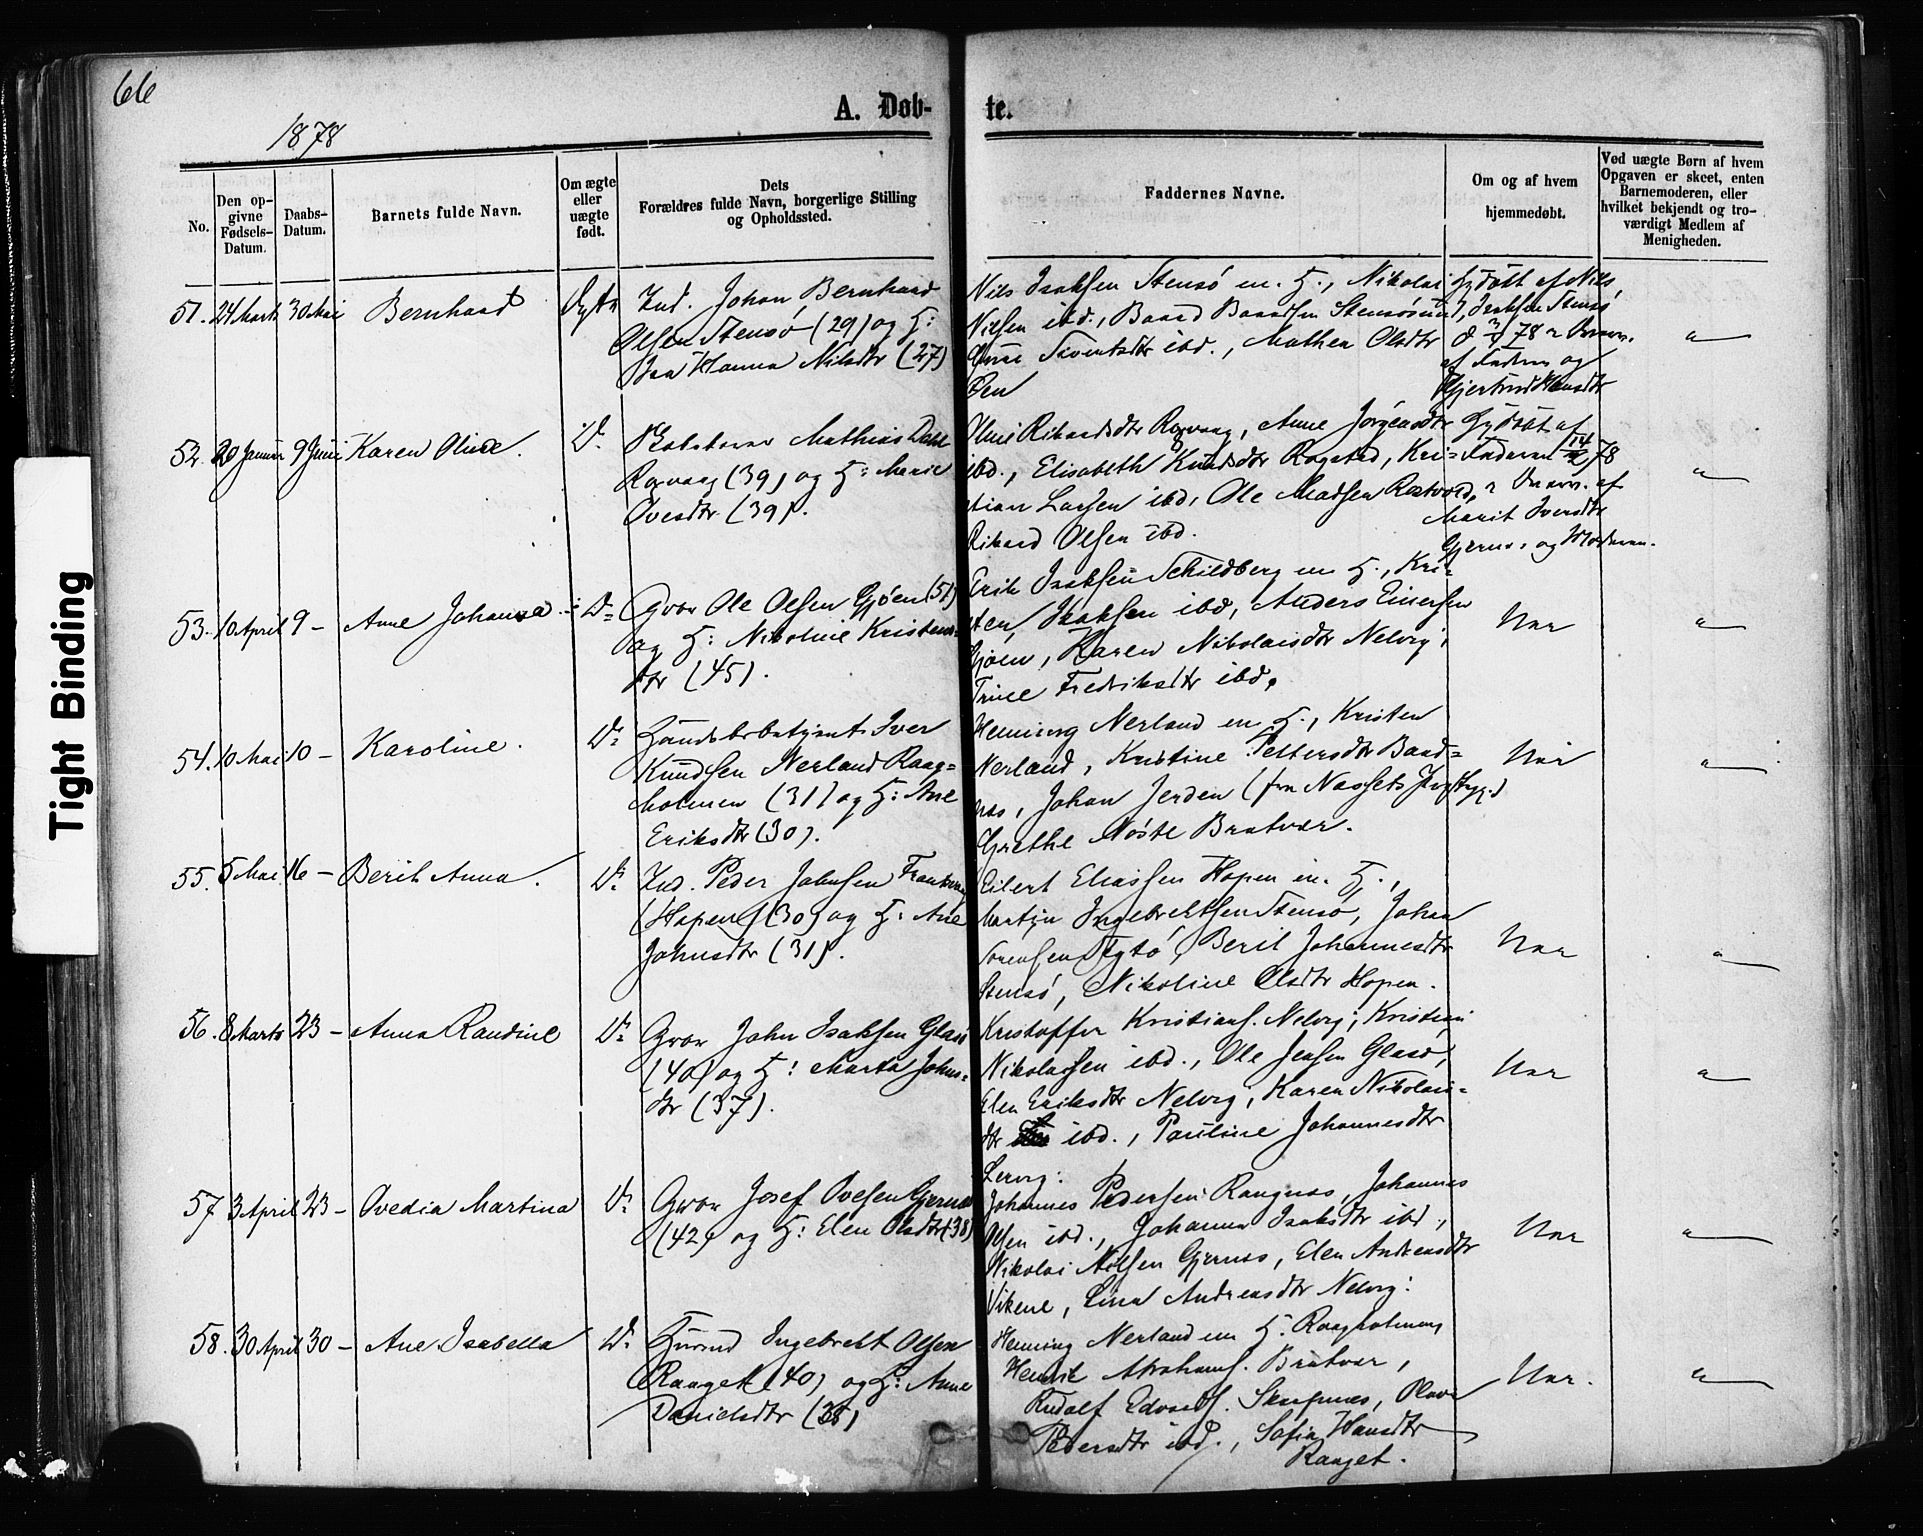 66
A. Døb-
te.
1878
No.
Den op-
givne
Fødsels-
Datum.
Daabs-
Datum.
Barnets fulde Navn.
Om ægte
eller
uægte
født.
Dets
Forældres fulde Navn, borgerlige Stilling
og Opholdssted.
Faddernes Navne.
Om og af hvem
hjemmedøbt.
Ved uægte Børn af hvem
Opgaven er skeet, enten
Barnemoderen, eller
hvilket bekjendt og tro-
værdigt Medlem af
Menigheden.
51. 24 Marts 30 Mai Bernhard Ægte Ind. Johan Bernhard
Olsen Stensø (29) og H:
Hanna Nilsdtr (27)
Nils Isaksen Stensø m. H., Nikolai
Nilsen ibd., Baard Baardsen Stensøsund,
Sivertsdtr ibd., Mathea Olsdtr
Øen
Hjdøbt af Nils
Isaksen Stensø
78
af Faderen og
Gjertrud Hansdtr
52. 20 Januar 9 Juni Karen Oline. D.
Mathias Dahl
Rogvaag (39) og H: Marit
Ovesdtr (39).
Rikardsdtr Rogvaag, Anne Jørgensdtr
ibd., Elisabeth Knudsdtr Rogstad, Kri-
stian Larsen ibd, Ole Madsen
Rikard Olsen ibd.
Hjdøbt af
Faderen 14/2 78
af
Marit Iversdtr
Gjernes og Moderen.
53. 10 April 9 - Anne Johanna D= Gbr Ole Olsen Gjøen (51)
og H: Nikoline Kristens-
dtr (45).
Erik Isaksen Schildberg m H., Kri-
sten Isaksen ibd, Anders Einersen
Gjøen, Karen Nikolaisdtr Nelvig,
Trine Fredriksdtr ibd.
Nar
54. 10 Mai 10 - Karoline. D: Handelsbetjent Iver
Knudsen Nerland Raag-
holmen (31) og H: Ane
Eriksdtr (30).
Henning Nerland m H., Kristen
Nerland, Kristine Pettersdtr Baad-
nes, Johan Jerden (fra Nessets Prgj.)
Grethe Nøste Bratvær.
Nar
55. 5 Mai 16 - Berit Anna. D: Ind. Peder Johnsen
(Hopen) (30) og H: Ane
Johnsdtr (31).
Eilert Eliassen Hopen m. H.,
Martin Ingebrektsen Stensø, Johan
Sørensen Flytø, Berit Johannesdtr
Stensø, Nikoline Olsdtr Hopen.
Nar
56. 8 Marts 23 - Anna Randine D: Gbr John Isaksen Glasø
(40) og H: Marta Johns-
dtr (37).
Kristoffer Kristians. Nelvig, Kristian
Nikolaisen ibd., Ole Jensen Glasø,
Elen Eriksdtr Nelvig, Karen Nikolai-
dtr ibd., Pauline Johannesdtr
Lervig:
Nar
57 3 April 23 - Ovedia Martina D: Gbr Josef Ovesen Gjernes
(42) og H: Elen Olsdtr (38)
Johannes Pedersen Raagnes, Johannes
Olsen ibd., Johanna Isaksdtr ibd.,
Nikolai Nilsen Gjernes, Elen Andreasdtr
Vikene, Lina Andreasdtr Nelvig:
Nar
58. 30 April 30 - Ane Isabella D. Husmd Ingebrekt Olsen
Raaget (40) og H: Anne
Danielsdtr (38)
Henning Nerland m H. Raagholmen,
Henrik Abrahams. Bratvær,
Rudolf Edvards. Skarpnes, Olava
Pedersdtr ibd., Sofia Hansdtr
Raaget.
Nar.
Tight Binding